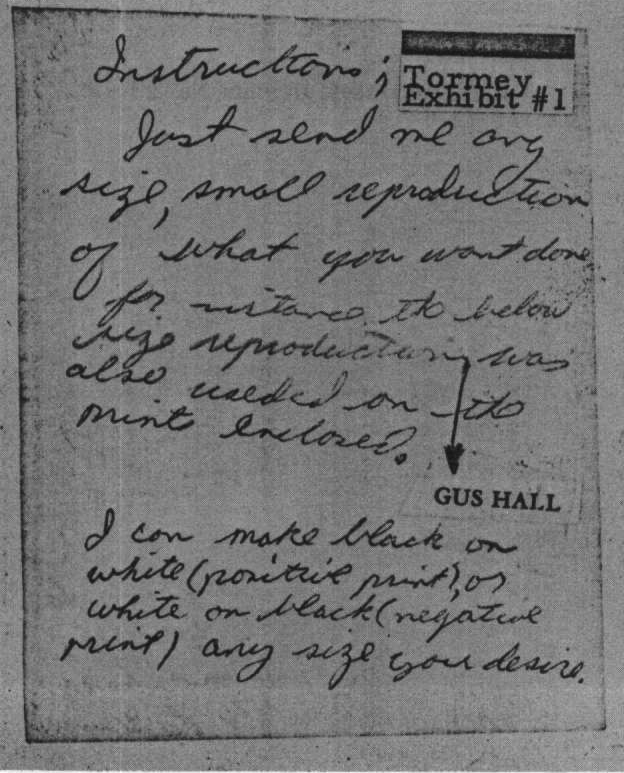 Instructions;
Tormey
Exhibit #1
Just send me any
size, small reproduction
of what you want done
for instance the below
size reproduction, was
also useded on the
print enclosed.
GUS HALL
I can make black on
white (positive print), or
white on black (negative
print) any size you desire.